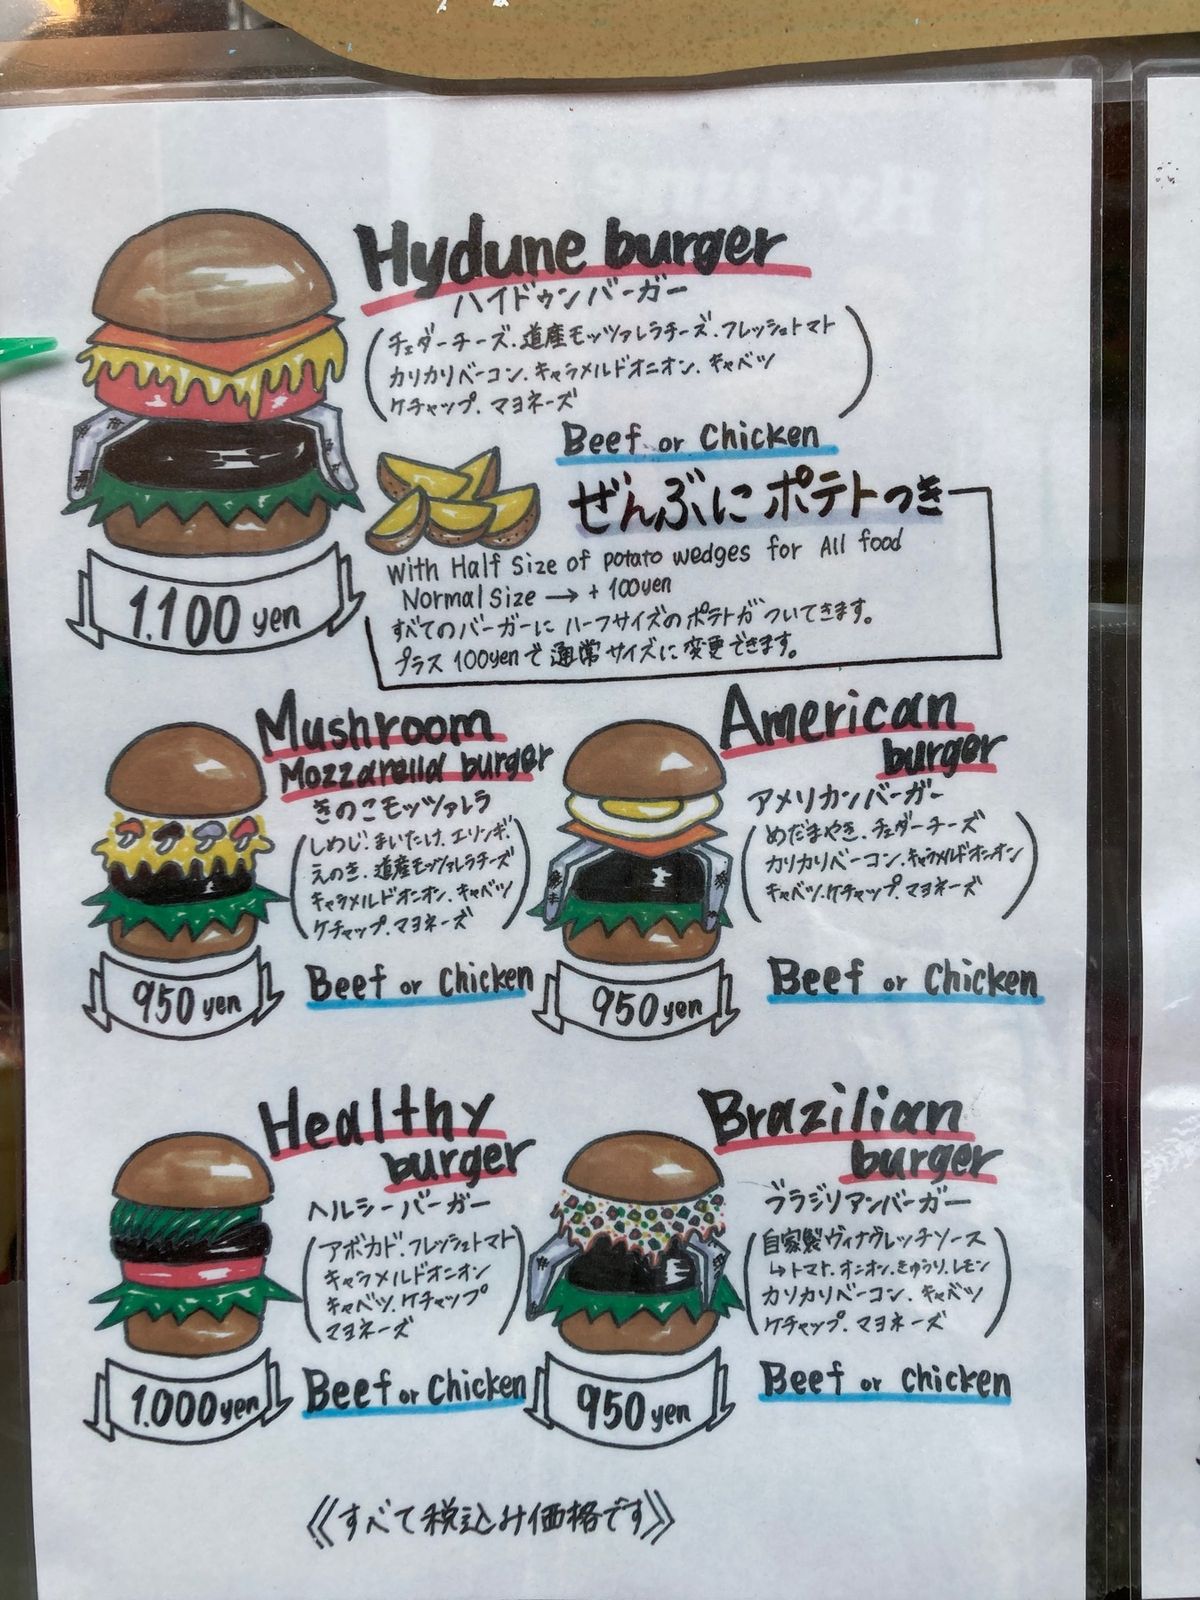 Hydune burger
ハイドゥンバーガー
(チェダーチーズ.道産モッツァレラチーズ.フレッシュトマト
カリカリベーコン.キャラメルドオニオン.キャベツ
ケチャップ.マヨネーズ)
Beef or Chicken
ぜんぶにポテトつき
With Half Size of potato wedges for All food
Normal Size → + 100yen
すべてのバーガーにハーフサイズのポテトがついてきます。
プラス100yenで通常サイズに変更できます。
1.100 yen
Mushroom
Mozzarella burger
きのこモッツァレラ
(しめじ.まいたけ.エリンギ.
えのき.道産モッツァレラチーズ
キャラメルドオニオン.キャベツ
ケチャップ.マヨネーズ)
Beef or Chicken
950 yen
American
burger
アメリカンバーガー
(めだまやき.チェダーチーズ
カリカリベーコン.キャラメルドオニオン
キャベツ.ケチャップ.マヨネーズ)
Beef or Chicken
950 yen
Healthy
burger
ヘルシーバーガー
(アボカド.フレッシュトマト
キャラメルドオニオン
キャベツ.ケチャップ
マヨネーズ)
Beef or Chicken
1.000yen
Brazilian
burger
ブラジリアンバーガー
(自家製ヴィナグレッチソース
↳トマト.オニオン.きゅうり.レモン
カリカリベーコン.キャベツ
ケチャップ.マヨネーズ)
Beef or Chicken
950 yen
《すべて税込み価格です》